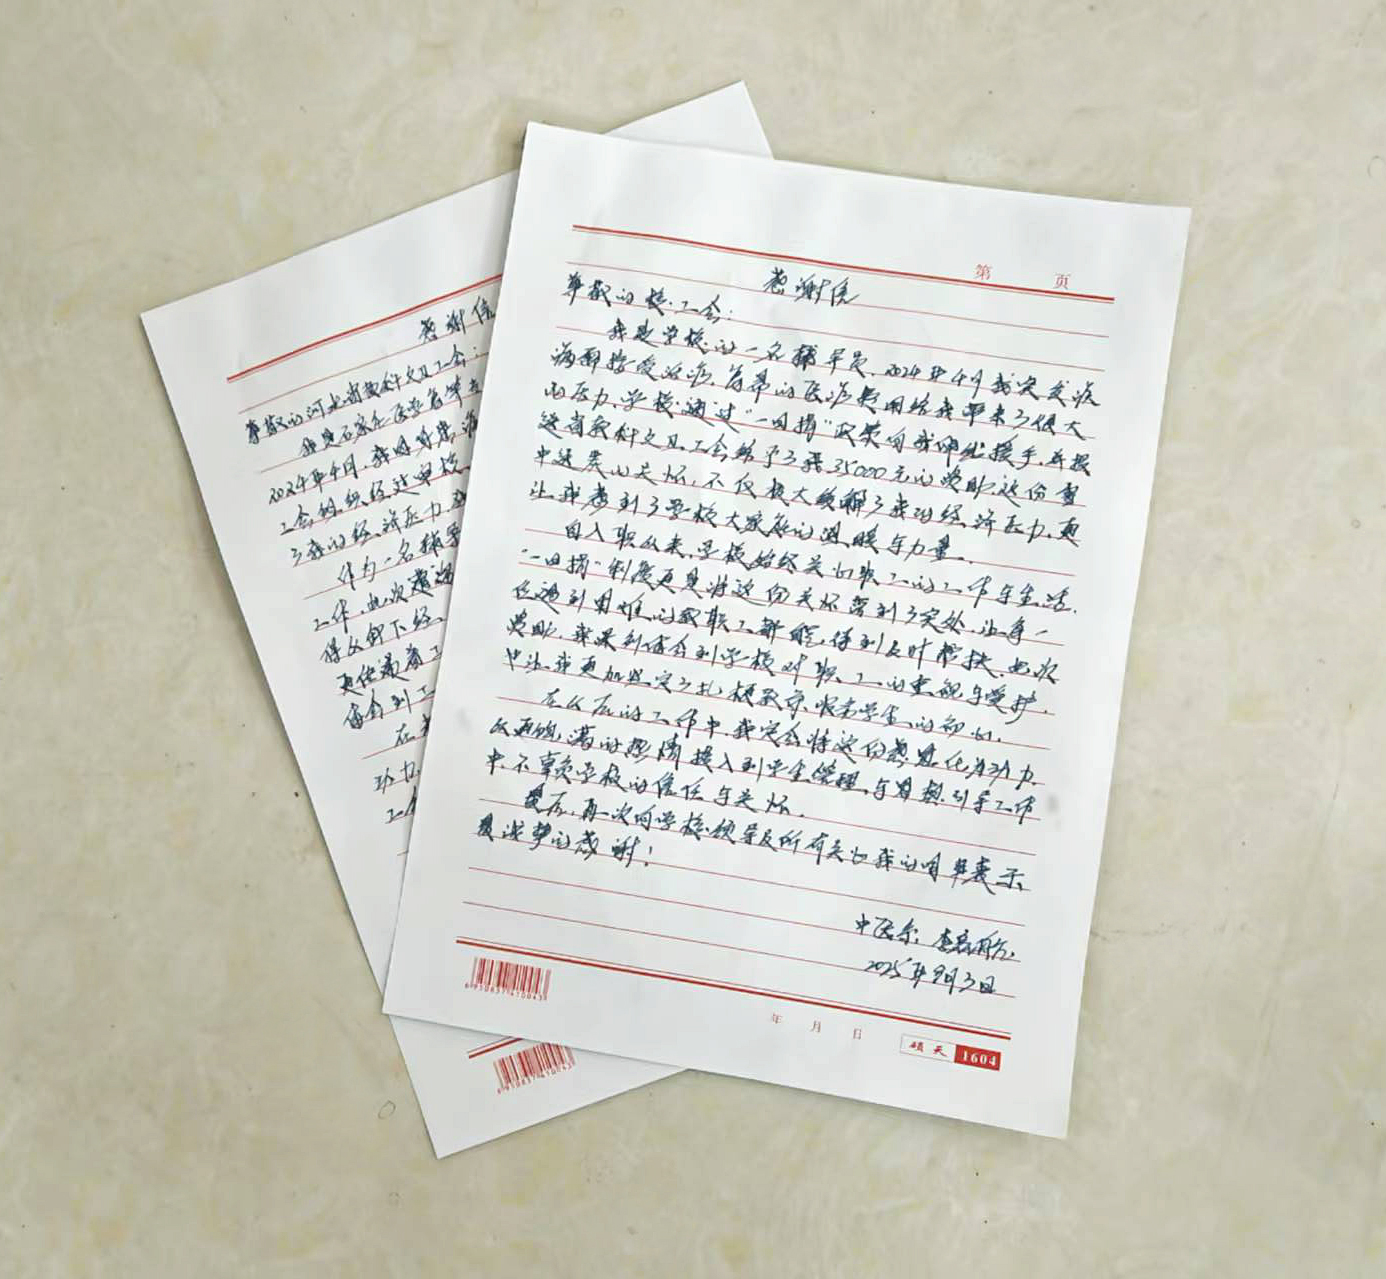 第 页
感谢信
尊敬的校工会：
我是学校的一名辅导员，2024年4月我突发疾
病需接受治疗，高昂的医疗费用给我带来了很大
的压力，学校通过“一日捐”政策向我伸出援手，并报
送省教科文卫工会给予了我35000元的资助，这份雪
中送炭的关怀，不仅极大缓解了我的经济压力，更
让我感到了学校大家庭的温暖与力量。
自入职以来，学校始终关心职工的工作与生活，
“一日捐”制度更是将这份关怀落到了实处，让每一
位遇到困难的教职工都能得到及时帮扶，此次
资助，我深刻体会到学校对职工的重视与爱护，
也让我更加坚定了扎根教育、服务学生的初心。
在今后的工作中，我定会将这份感恩化为动力，
以更饱满的热情投入到学生管理与思想引导工作
中，不辜负学校的信任与关怀。
最后，再一次向学校领导及所有关心我的同事表示
最诚挚的感谢！
中医系：
2025年9月3日
6950837410043
年 月 日
硕天 1604
感谢信
尊敬的河北省教科文卫工会：
我是石家庄医学高等专
2024年4月，我因身患
工会组织，经过审核，
了我的经济压力，
作为一名辅导
工作，此次
得以卸下经
更传递着
体会到工
在
动力，
工作
6950837410043